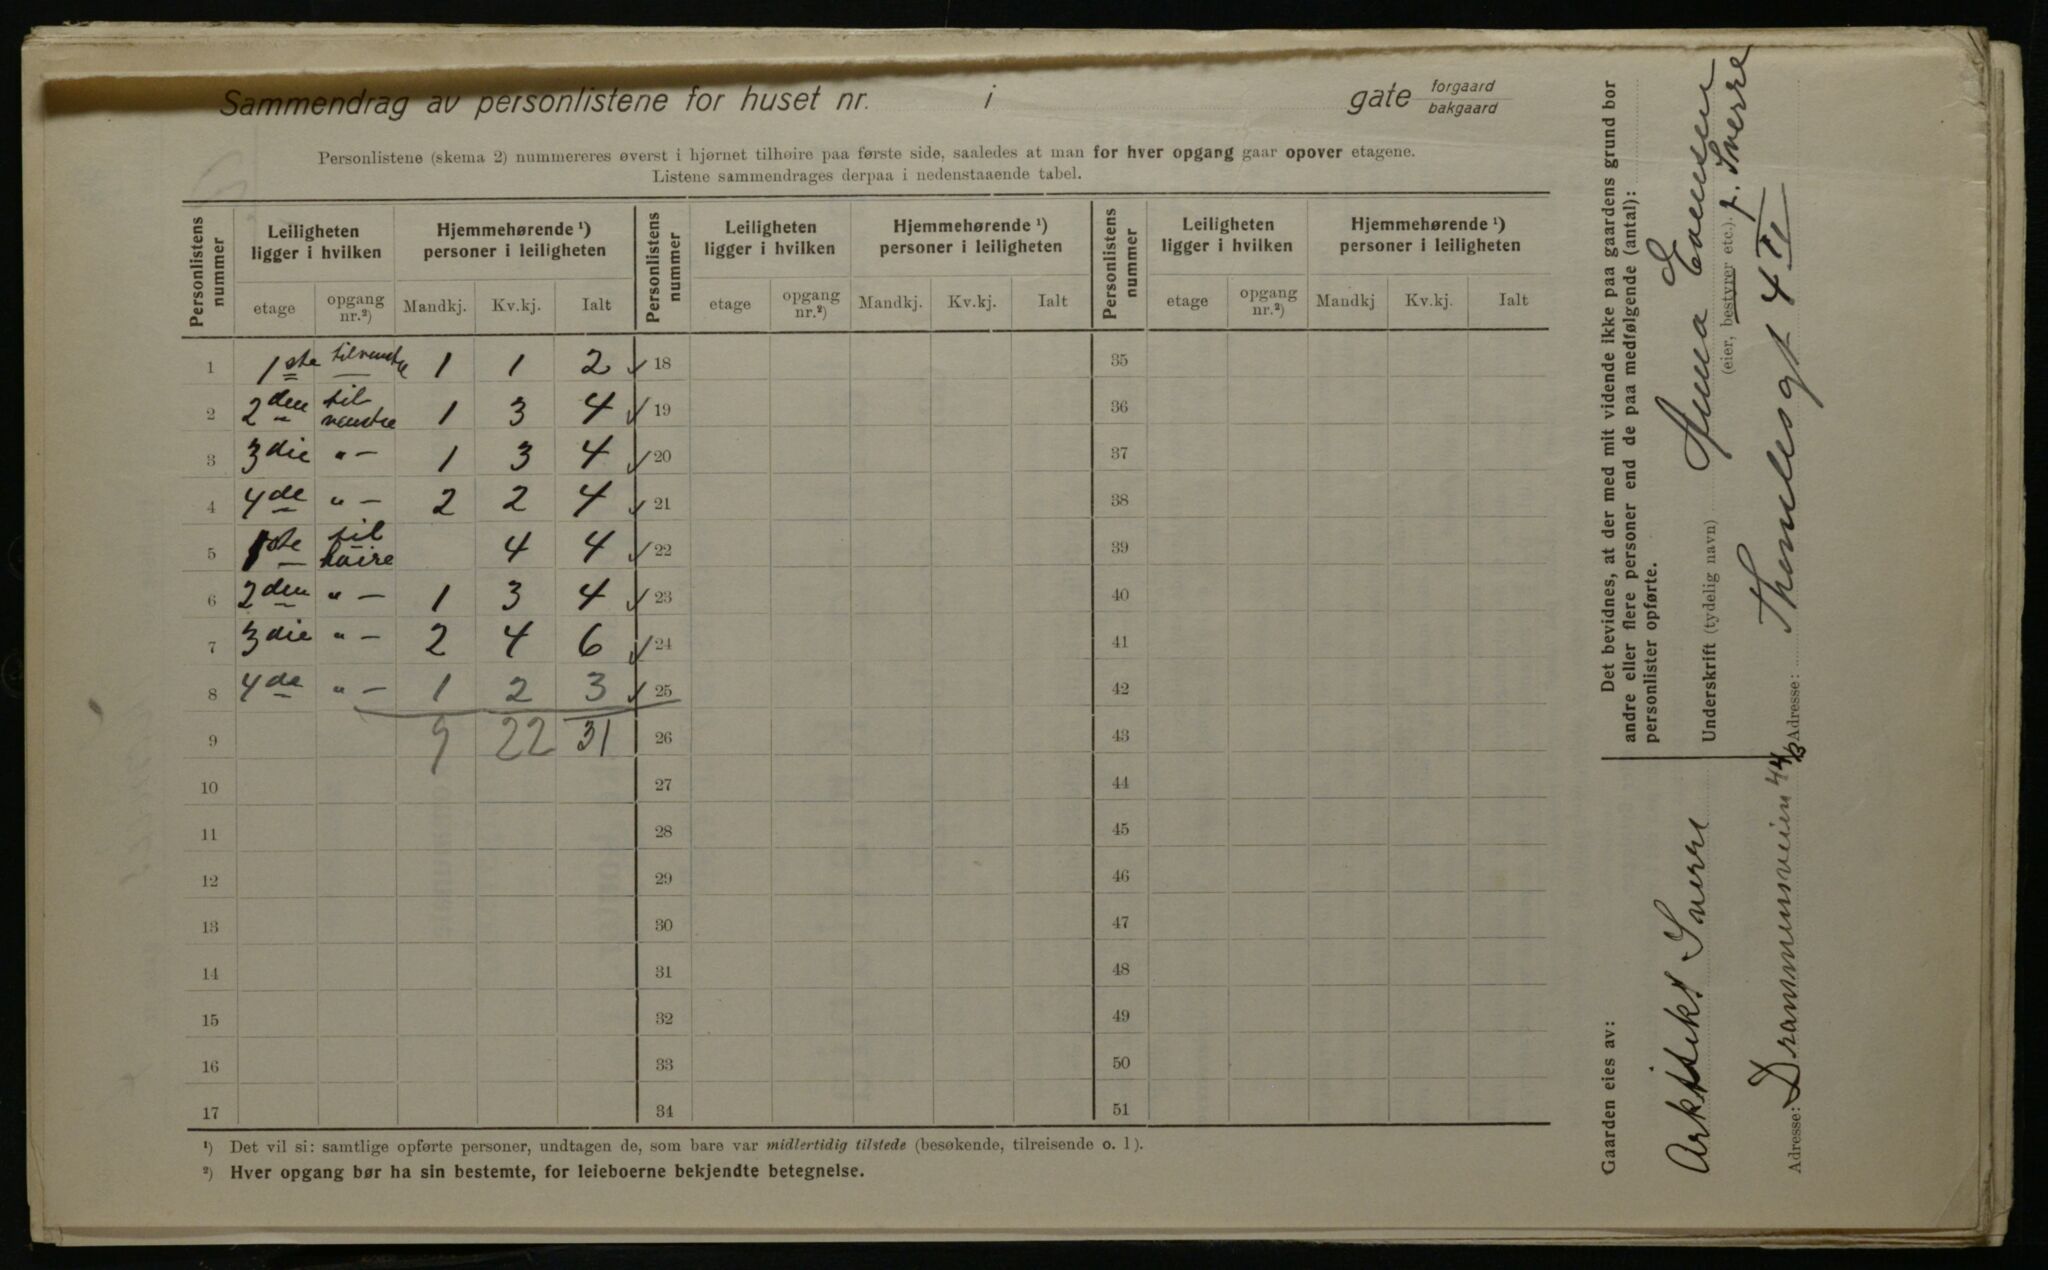 Sammendrag av personlistene for huset nr. i gate forgaard bakgaard
Personlistene (skema 2) nummereres øverst i hjørnet tilhøire paa første side, saaledes at man for hver opgang gaar opover etagene.
Listene sammendrages derpaa i nedenstaaende tabel.
Personlistens nummer | Leiligheten ligger i hvilken | Hjemmehørende ¹) personer i leiligheten | Personlistens nummer | Leiligheten ligger i hvilken | Hjemmehørende ¹) personer i leiligheten | Personlistens nummer | Leiligheten ligger i hvilken | Hjemmehørende ¹) personer i leiligheten
etage | opgang nr.²) | Mandkj. | Kv.kj. | Ialt | etage | opgang nr.²) | Mandkj. | Kv.kj. | Ialt | etage | opgang nr.²) | Mandkj | Kv.kj. | Ialt
1 1ste tilvenstre 1 1 2 18 35
2 2den til venstre 1 3 4 19 36
3 3die " – 1 3 4 20 37
4 4de " – 2 2 4 21 38
5 1ste til høire 4 4 22 39
6 2den " – 1 3 4 23 40
7 3die " – 2 4 6 24 41
8 4de " – 1 2 3 25 42
9 9 22 31 26 43
10 27 44
11 28 45
12 29 46
13 30 47
14 31 48
15 32 49
16 33 50
17 34 51
¹) Det vil si: samtlige opførte personer, undtagen de, som bare var midlertidig tilstede (besøkende, tilreisende o. l).
²) Hver opgang bør ha sin bestemte, for leieboerne bekjendte betegnelse.
Gaarden eies av:
Arkitekt Sverre
Adresse: Drammensveien 44 B
Det bevidnes, at der med mit vidende ikke paa gaardens grund bor
andre eller flere personer end de paa medfølgende (antal):
personlister opførte.
Underskrift (tydelig navn) Anna Evensen
(eier, bestyrer etc.). f. Sverre
Adresse: Thomlesgt 4 III